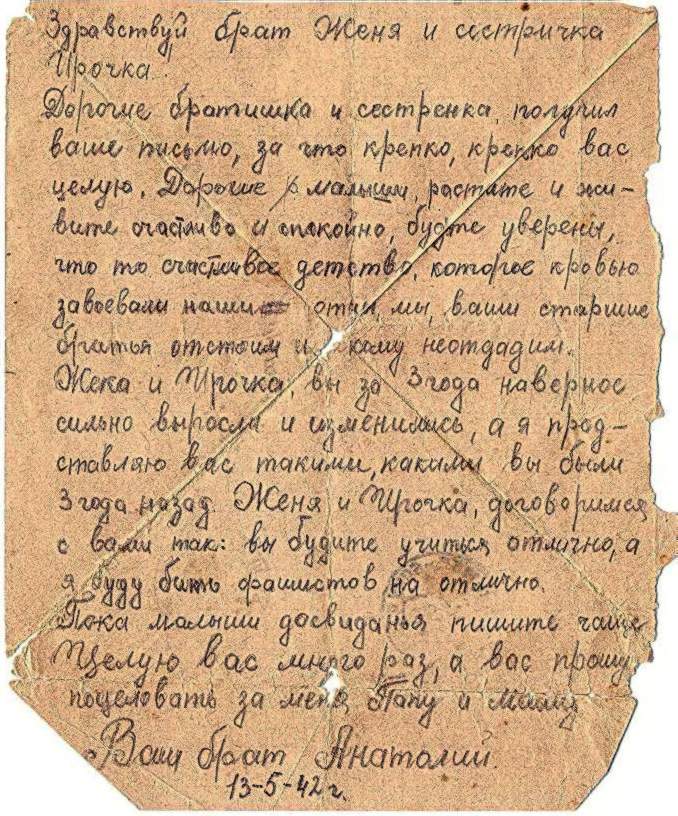 Здравствуй брат Женя и сестричка
Ирочка.
Дорогие братишка и сестренка, получил
ваше письмо, за что крепко, крепко вас
целую. Дорогие малыши, растите и жи-
вите счастливо и спокойно, будте уверены,
что то счастливое детство, которое кровью
завоевали наши отцы, мы, ваши старшие
братья отстоим и кому неотдадим.
Жека и Ирочка, вы за 3 года наверное
сильно выросли и изменились, а я пред-
ставляю вас такими, какими вы были
3 года назад. Женя и Ирочка, договоримся
с вами так: вы будите учиться отлично, а
я буду бить фашистов на отлично.
Пока малыши досвиданья пишите чаще
Целую вас много раз, а вас прошу
поцеловать за меня Папу и Маму
Ваш брат Анатолий.
13-5-42 г.